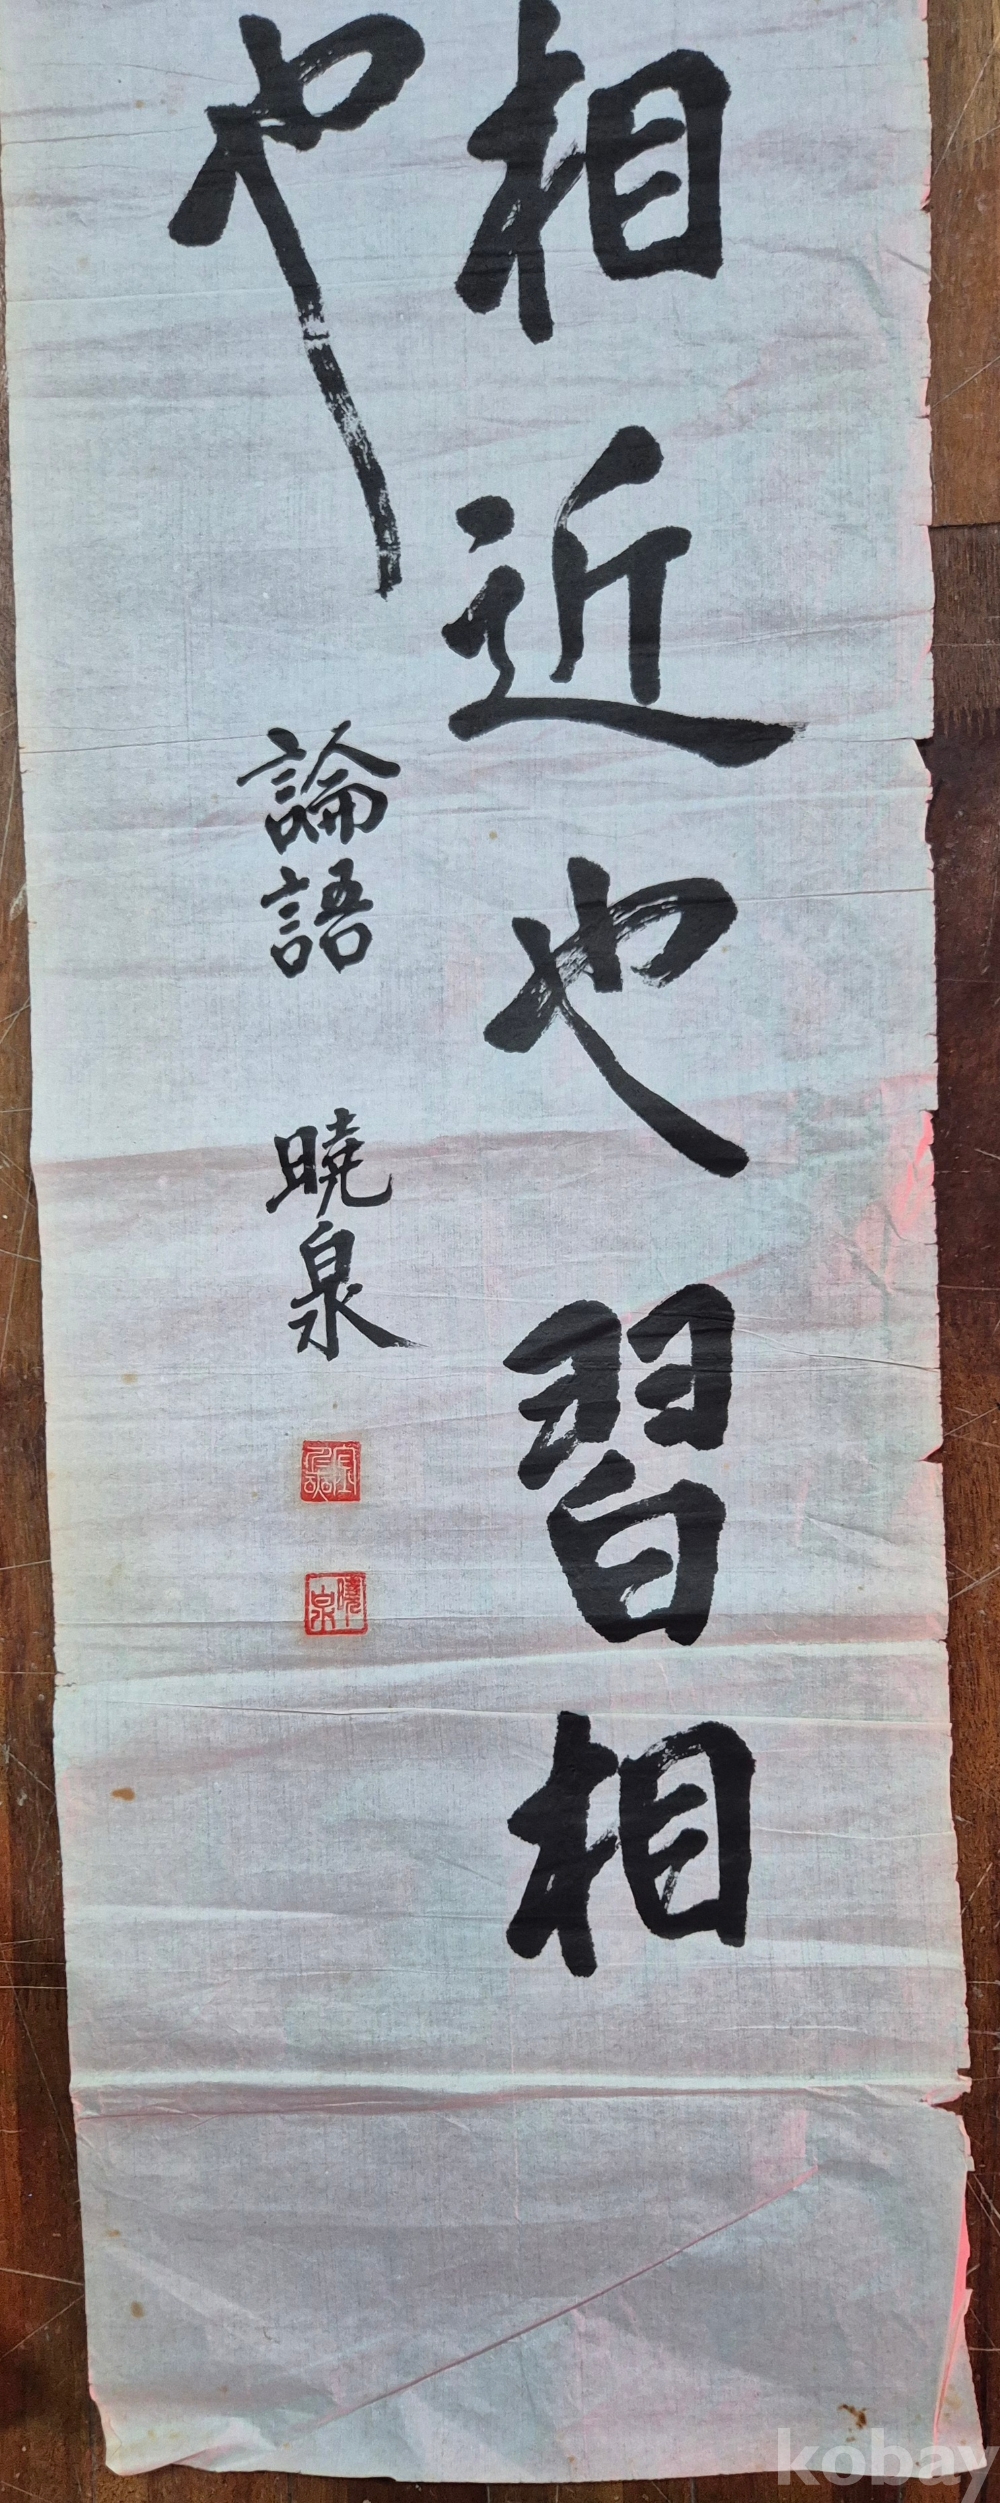 相近也習相
也
論語 曉泉
曉泉
kobay